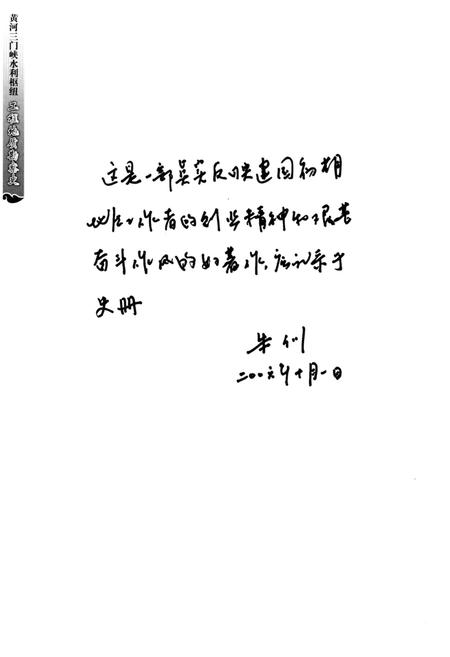 黄河三门峡水利枢纽 工程地质勘察史
这是一部真实反映建国初期
地质工作者的创业精神和艰苦
奋斗作风的好著作，应记录于
史册
朱训
二〇〇六年十月一日